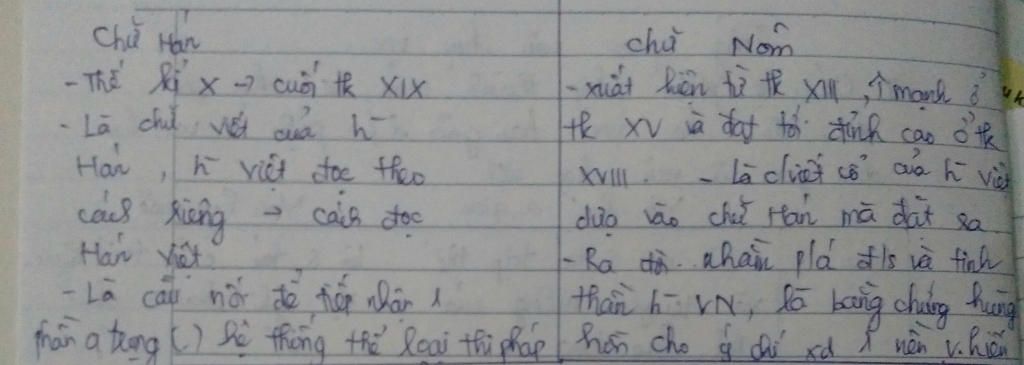 Chữ Hán
- Thế kỉ X → cuối tk XIX
- Là chữ viết của h-
Hán, h- việt đọc theo
cách riêng → cách đọc
Hán việt
- Là cầu nối để tiếp nhận 1
phần q trọng () hệ thống thể loại thi pháp
chữ Nôm
- xuất hiện từ tk XIII, ↑ mạnh ở
tk XV và đạt tới đỉnh cao ở tk
XVIII - Là cổ của h- việt
dựa vào chữ Hán mà đặt ra
- Ra đời nhằm đ/s và tinh
thần h- VN, là bằng chứng hùng
hồn cho ý chí xd 1 nền v. hiến